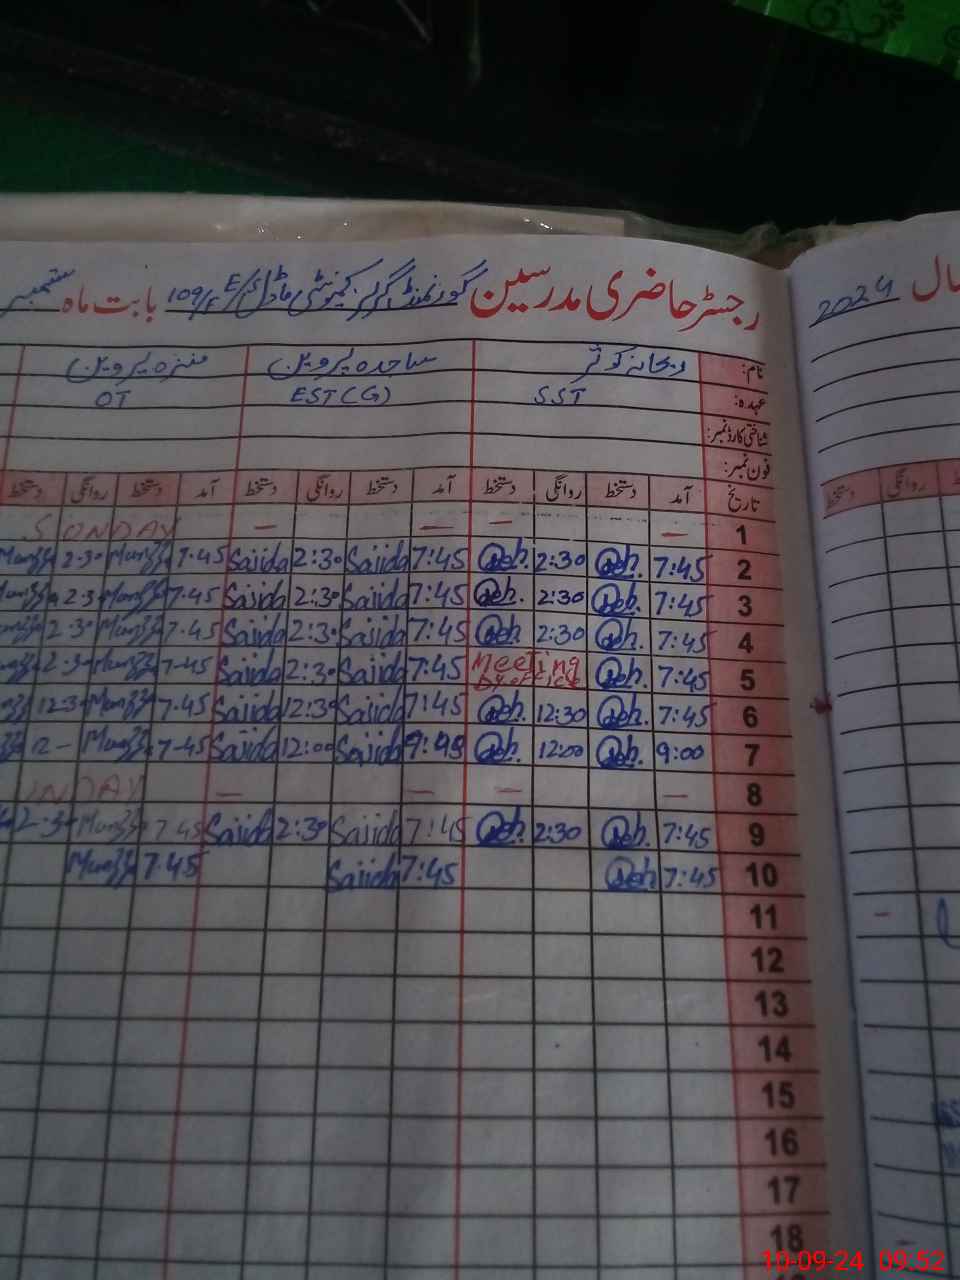 رجسٹر حاضری مدرسین گورنمنٹ گرلز کمیونٹی ماڈل E/S 109/F بابت ماہ ستمبر
سال 2024
نام: ریحانہ کوثر ساجدہ پروین منزہ پروین
عہدہ: SST EST (G) OT
شناختی کارڈ نمبر:
فون نمبر:
تاریخ آمد دستخط روانگی دستخط آمد دستخط روانگی دستخط آمد دستخط روانگی دستخط
روانگی دستخط
1 — — — — SUNDAY
2 7:45 Reh. 2:30 Reh. 7:45 Sajida 2:30 Sajida 7:45 2:30
3 7:45 Reh. 2:30 Reh. 7:45 Sajida 2:30 Sajida 7:45 2:30
4 7:45 Reh. 2:30 Reh 7:45 Sajida 2:30 Sajida 7:45 2:30
5 7:45 Reh. Meeting 7:45 Sajida 2:30 Sajida 7-45 2:30
6 7:45 Reh. 12:30 Reh. 7:45 Sajida 12:30 Sajida 7:45 12:30
7 9:00 Reh. 12:00 Reh. Sajida 12:00 Sajida 7-45 12-
8 — — — — SUNDAY
9 7:45 Reh. 2:30 Reh. 7:45 Sajida 2:30 Sajida 7:45 2:30
10 7:45 Reh 7:45 Sajida 7:45
11 —
12
13
14
15
16
17
18
10-09-24 09:52